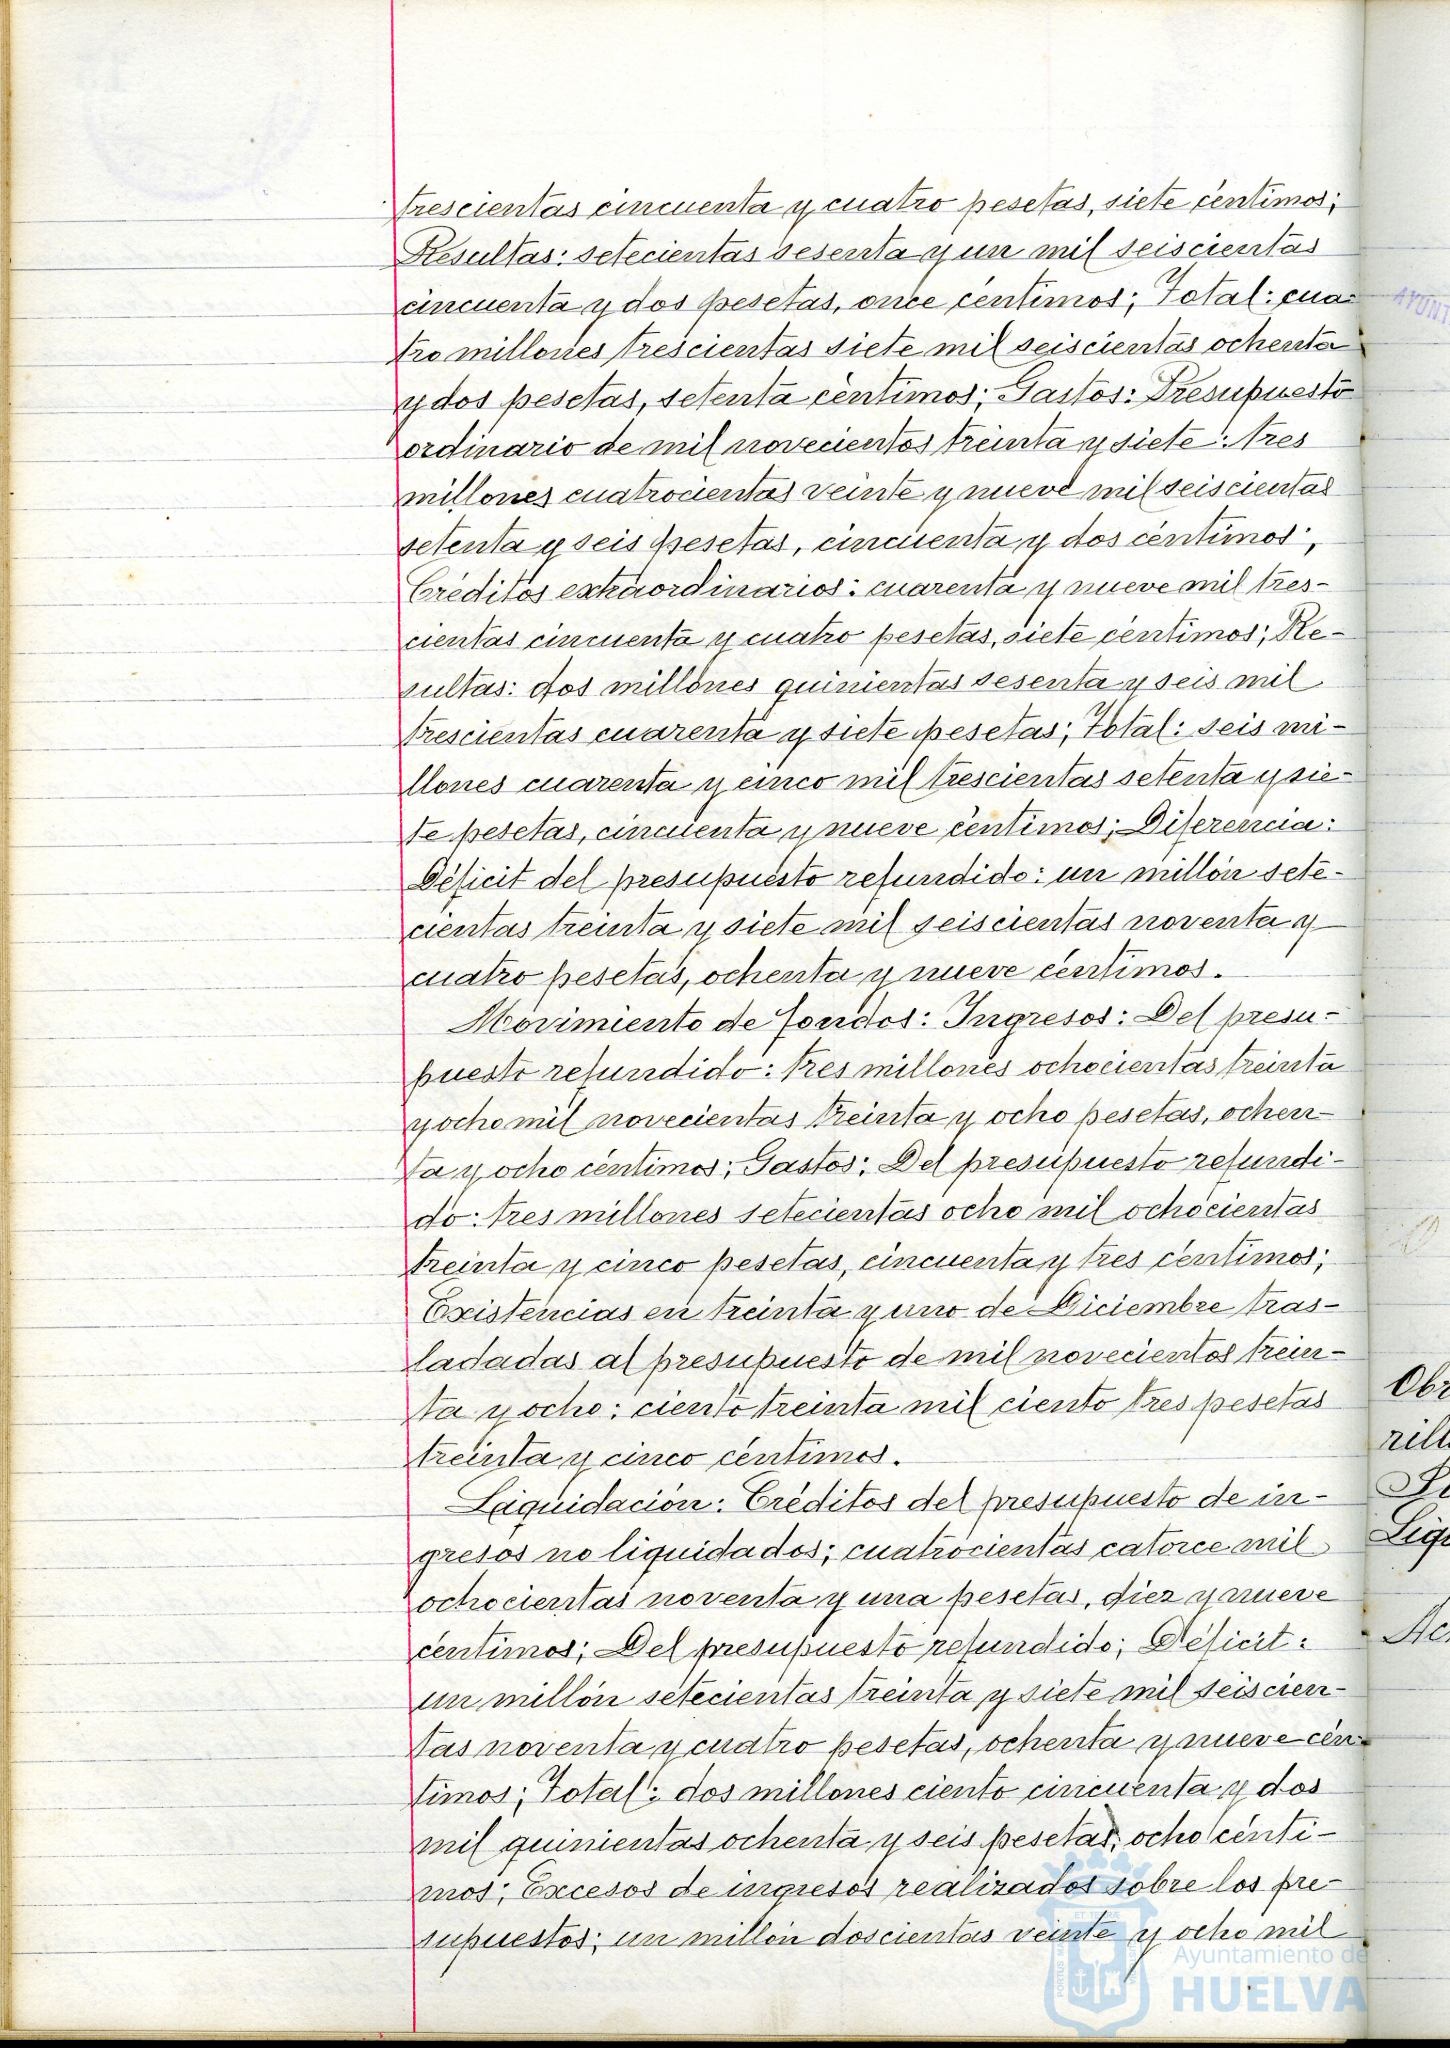 trescientas cincuenta y cuatro pesetas, siete céntimos;
Resultas: setecientas sesenta y un mil seiscientas
cincuenta y dos pesetas, once céntimos; Total: cua-
tro millones trescientas siete mil seiscientas ochenta
y dos pesetas, setenta céntimos; Gastos: Presupuesto
ordinario de mil novecientos treinta y siete: tres
millones cuatrocientas veinte y nueve mil seiscientas
setenta y seis pesetas, cincuenta y dos céntimos;
Créditos extraordinarios: cuarenta y nueve mil tres-
cientas cincuenta y cuatro pesetas, siete céntimos; Re-
sultas: dos millones quinientas sesenta y seis mil
trescientas cuarenta y siete pesetas; Total: seis mi-
llones cuarenta y cinco mil trescientas setenta y sie-
te pesetas, cincuenta y nueve céntimos; Diferencia:
Déficit del presupuesto refundido: un millón sete-
cientas treinta y siete mil seiscientas noventa y
cuatro pesetas, ochenta y nueve céntimos.
Movimiento de fondos: Ingresos: Del presu-
puesto refundido: tres millones ochocientas treinta
y ocho mil novecientas treinta y ocho pesetas, ochen-
ta y ocho céntimos; Gastos: Del presupuesto refundi-
do: tres millones setecientas ocho mil ochocientas
treinta y cinco pesetas, cincuenta y tres céntimos;
Existencias en treinta y uno de Diciembre tras-
ladadas al presupuesto de mil novecientos trein-
ta y ocho: ciento treinta mil ciento tres pesetas
treinta y cinco céntimos.
Liquidación: Créditos del presupuesto de in-
gresos no liquidados; cuatrocientas catorce mil
ochocientas noventa y una pesetas, diez y nueve
céntimos; Del presupuesto refundido; Déficit:
un millón setecientas treinta y siete mil seiscien-
tas noventa y cuatro pesetas, ochenta y nueve cén-
timos; Total: dos millones ciento cincuenta y dos
mil quinientas ochenta y seis pesetas, ocho cénti-
mos; Excesos de ingresos realizados sobre los pre-
supuestos; un millón doscientas veinte y ocho mil
AYUNT
Obr
rill
Liqu
Ayuntamiento de
HUELVA